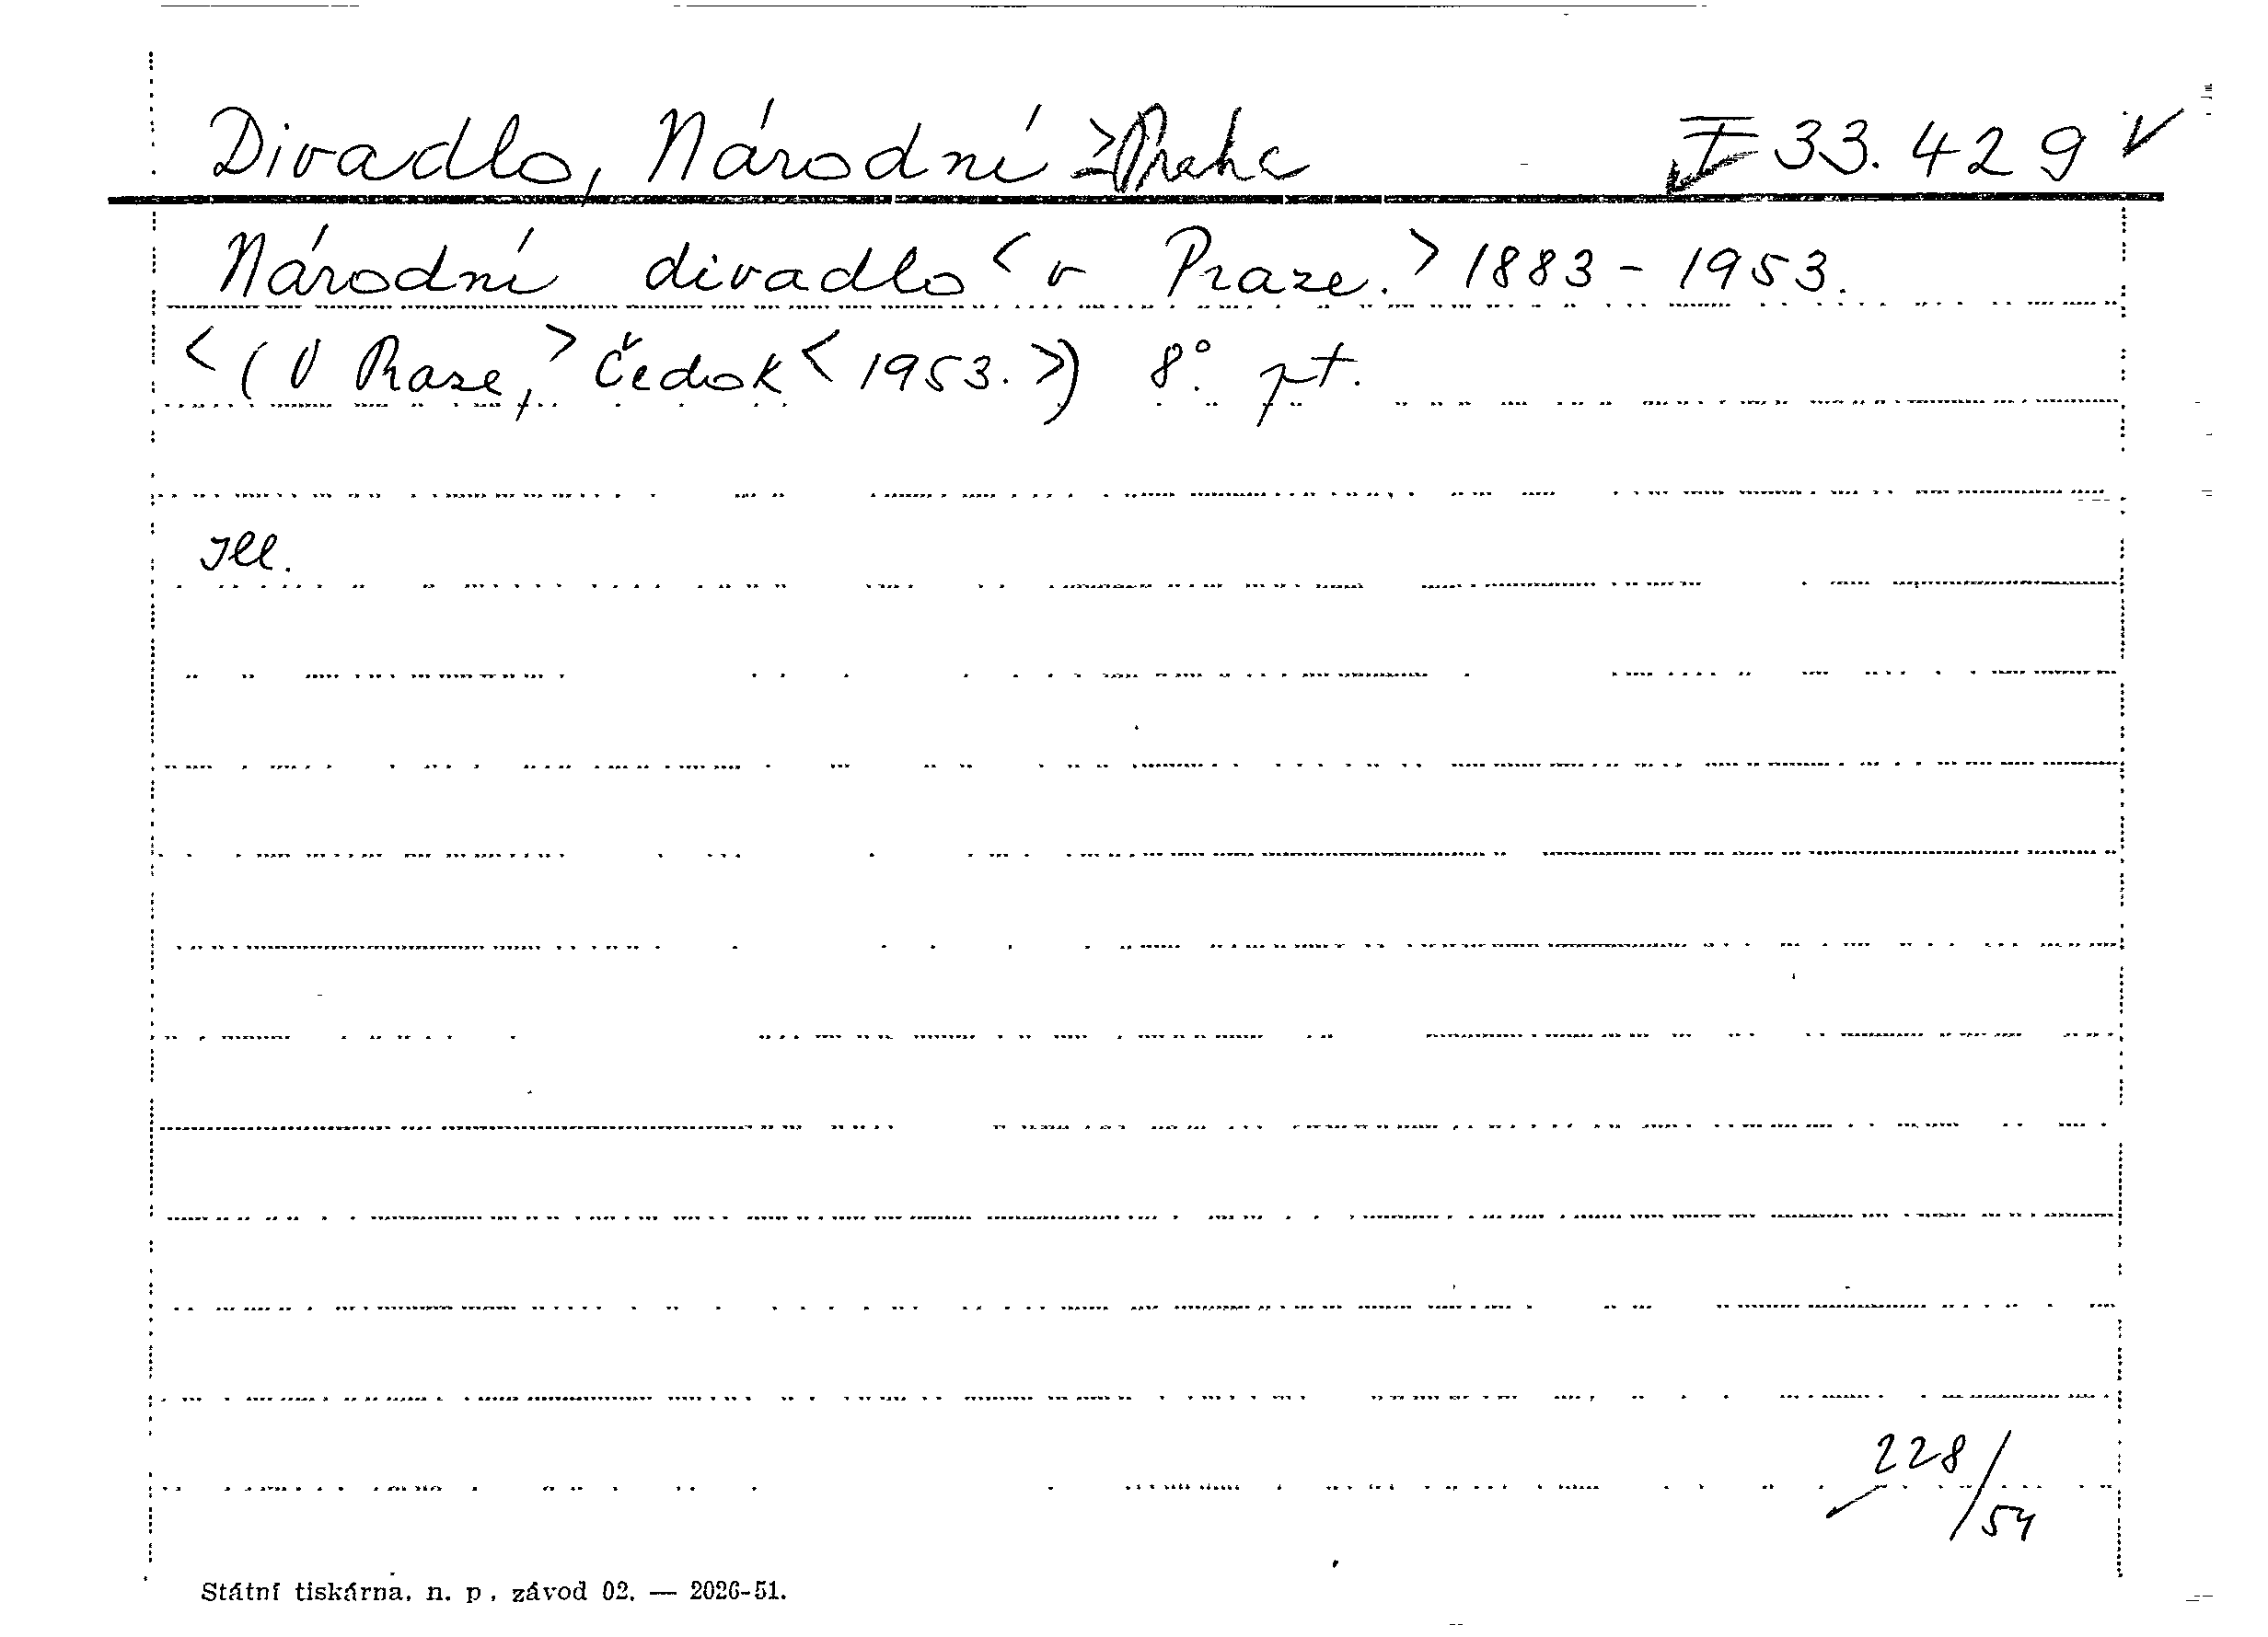 Divadlo, Národní > Praha I 33.429
Národní divadlo < v Praze. > 1883 - 1953.
< (V Praze, > Čedok < 1953. >) 8°. pt.
Ill.
228/54
Státní tiskárna, n. p., závod 02. — 2026-51.